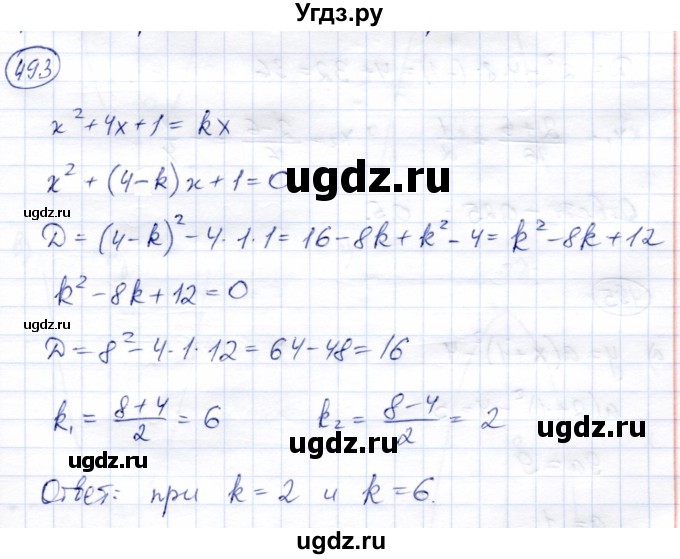 Угдз.ру
493
x² + 4x + 1 = kx
x² + (4 - k)x + 1 = 0
ugdz.ru
ugdz.ru
D = (4 - k)² - 4 · 1 · 1 = 16 - 8k + k² - 4 = k² - 8k + 12
k² - 8k + 12 = 0
ugdz.ru
D = 8² - 4 · 1 · 12 = 64 - 48 = 16
k₁ = (8 + 4)/2 = 6 k₂ = (8 - 4)/2 = 2
ugdz.ru ugdz.ru ugdz.ru
Ответ: при k = 2 и k = 6.
ugdz.ru